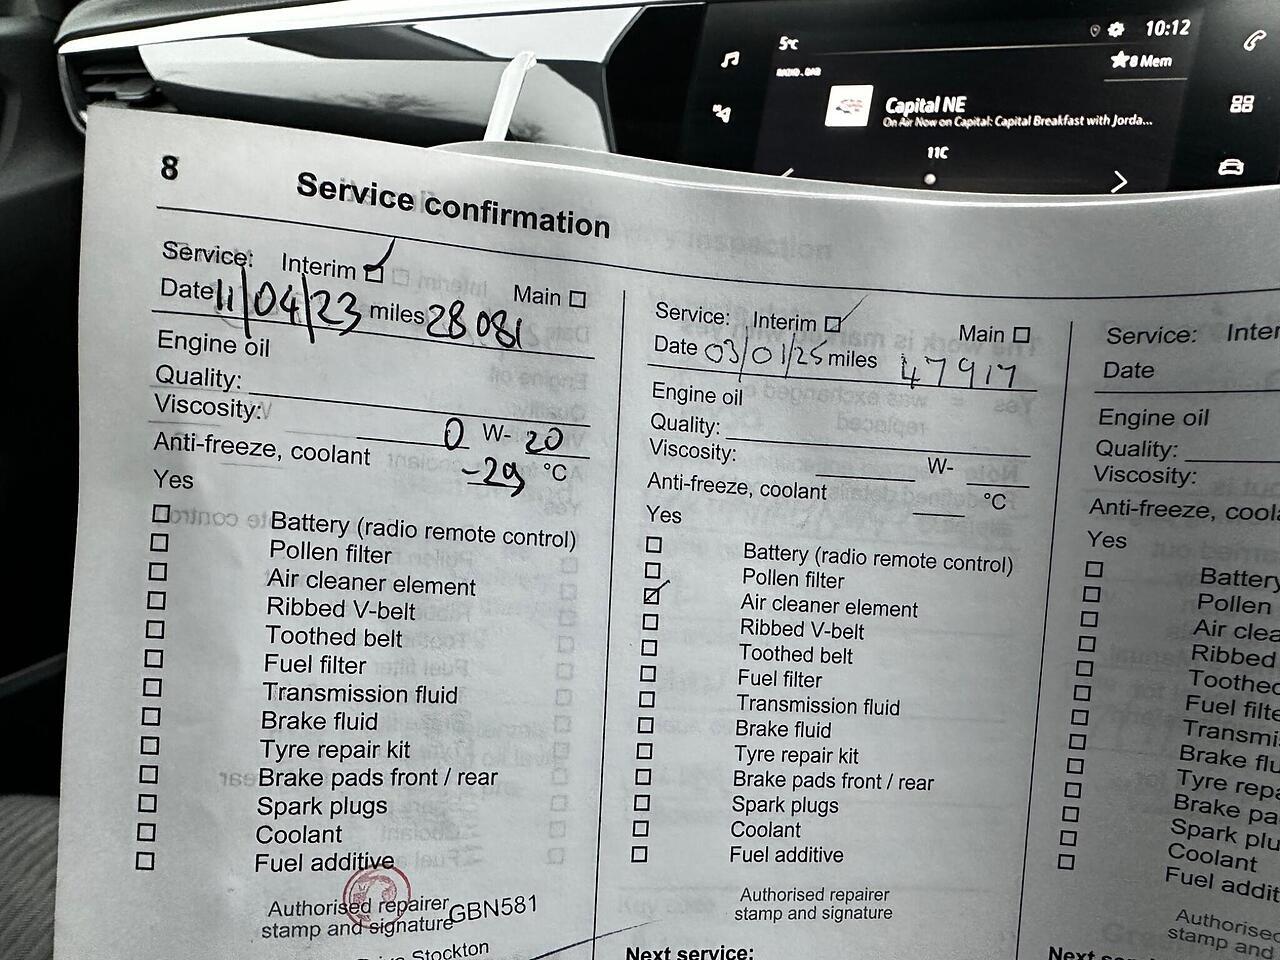 5°C
10:12
RADIO . DAB
8 Mem
Capital NE
On Air Now on Capital: Capital Breakfast with Jorda...
11C
8
Service confirmation
Service: Interim Main
Date 11/04/23 miles 28081
Engine oil
Quality:
Viscosity: 0 W- 20
Anti-freeze, coolant -29 °C
Yes
Battery (radio remote control)
Pollen filter
Air cleaner element
Ribbed V-belt
Toothed belt
Fuel filter
Transmission fluid
Brake fluid
Tyre repair kit
Brake pads front / rear
Spark plugs
Coolant
Fuel additive
Authorised repairer
stamp and signature
GBN581
Stockton
Service: Interim Main
Date 03/01/25 miles 47917
Engine oil
Quality:
Viscosity: W-
Anti-freeze, coolant °C
Yes
Battery (radio remote control)
Pollen filter
Air cleaner element
Ribbed V-belt
Toothed belt
Fuel filter
Transmission fluid
Brake fluid
Tyre repair kit
Brake pads front / rear
Spark plugs
Coolant
Fuel additive
Authorised repairer
stamp and signature
Next service:
Service: Inter
Date
Engine oil
Quality:
Viscosity:
Anti-freeze, coola
Yes
Battery
Pollen
Air clea
Ribbed
Toothed
Fuel filte
Transmi
Brake flu
Tyre repa
Brake pa
Spark plu
Coolant
Fuel addit
Authorised
stamp and
Next serv